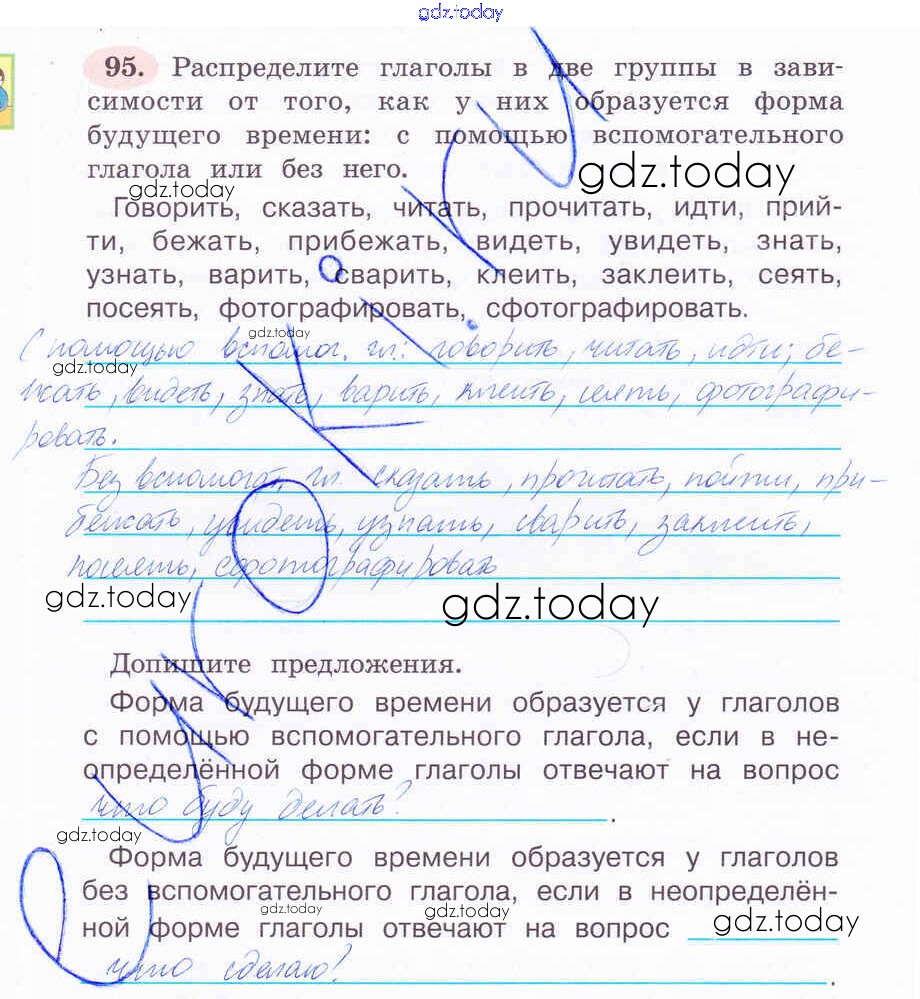 gdz.today
95. Распределите глаголы в две группы в зави-
симости от того, как у них образуется форма
будущего времени: с помощью вспомогательного
глагола или без него.
gdz.today
gdz.today
Говорить, сказать, читать, прочитать, идти, прий-
ти, бежать, прибежать, видеть, увидеть, знать,
узнать, варить, сварить, клеить, заклеить, сеять,
посеять, фотографировать, сфотографировать.
gdz.today
С помощью вспомог. гл.: говорить, читать, идти; бе-
gdz.today
жать, видеть, знать, варить, клеить, сеять, фотографи-
ровать.
Без вспомогат. гл. сказать, прочитать, пойти, при-
бежать, увидеть, узнать, сварить, заклеить,
посеять, сфотографировать
gdz.today
gdz.today
Допишите предложения.
Форма будущего времени образуется у глаголов
с помощью вспомогательного глагола, если в не-
определённой форме глаголы отвечают на вопрос
что буду делать?.
gdz.today
Форма будущего времени образуется у глаголов
без вспомогательного глагола, если в неопределён-
ной форме глаголы отвечают на вопрос
gdz.today
gdz.today
gdz.today
что сделаю?.
eurokі.ru